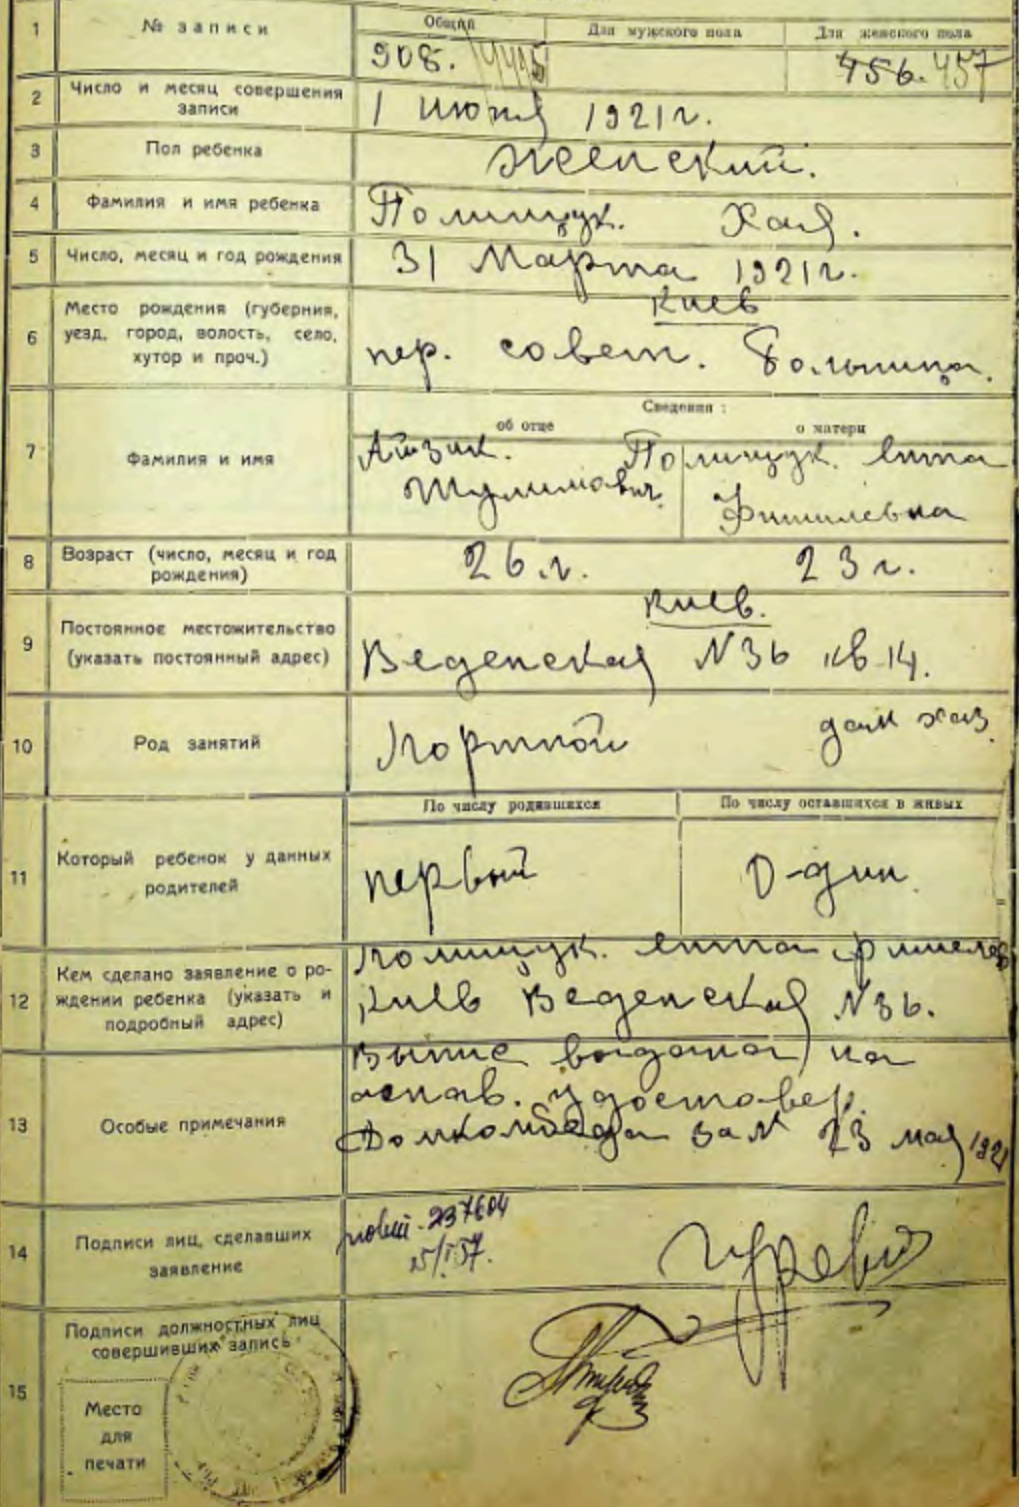 1 № записи Общий Для мужского пола Для женского пола
908. 456. 457
2 Число и месяц совершения
записи
1 июня 1921 г.
3 Пол ребенка Женский.
4 Фамилия и имя ребенка Полищук. Хая.
5 Число, месяц и год рождения 31 Марта 1921 г.
6 Место рождения (губерния,
уезд, город, волость, село,
хутор и проч.)
Киев
пер. совет. больница.
7 Фамилия и имя
Сведения:
об отце о матери
Айзик. Полищук. Ента
Шулимович. Фишилевна
8 Возраст (число, месяц и год
рождения)
26 г. 23 г.
9 Постоянное местожительство
(указать постоянный адрес)
Киев.
Веденская N 36 кв. 14.
10 Род занятий Портной дом хаз.
11 Который ребенок у данных
родителей
По числу родившихся По числу оставшихся в живых
первый О-дин
12 Кем сделано заявление о ро-
ждении ребенка (указать и
подробный адрес)
Полищук. Ента
Киев Веденская N 36.
13 Особые примечания
Выпис выдана на
основ. удостовер.
Домкомбеда за N 23 мая 1921
14 Подписи лиц, сделавших
заявление
237604
15 Подписи должностных лиц
совершивших запись
Место
для
печати